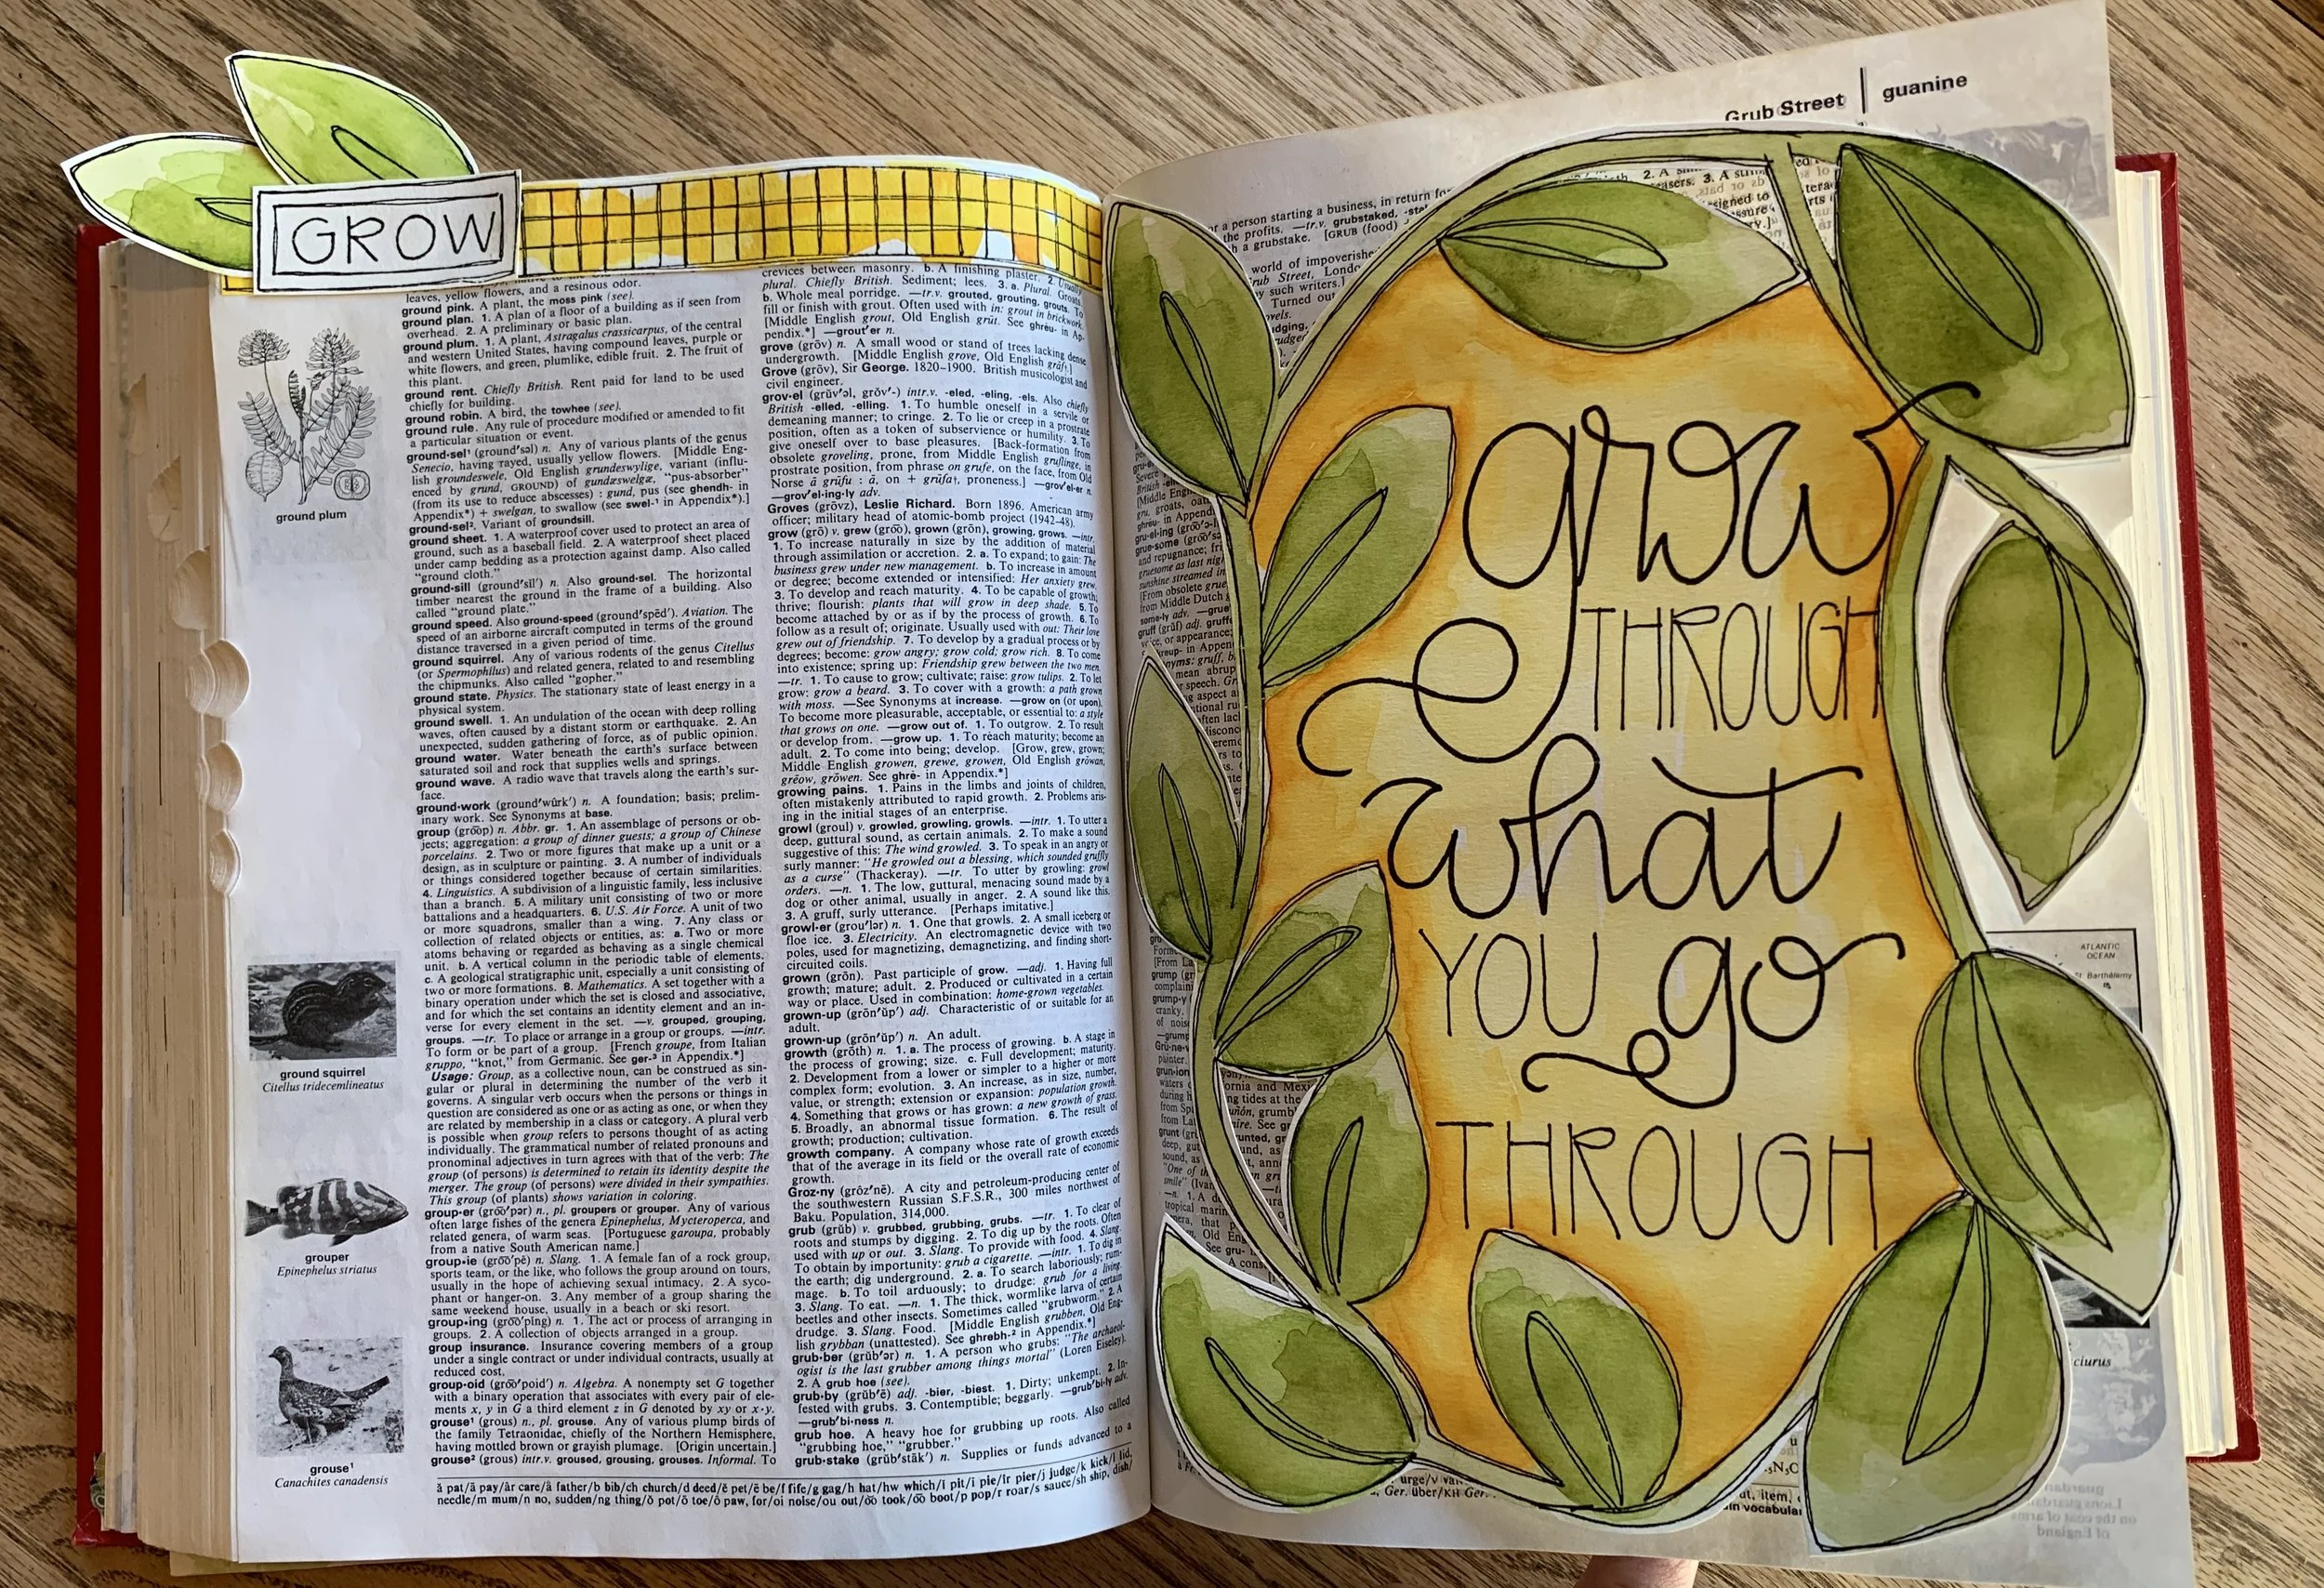 GROW
leaves, yellow flowers, and a resinous odor.
ground pink. A plant, the moss pink (see).
ground plan. 1. A plan of a floor of a building as if seen from
overhead. 2. A preliminary or basic plan.
ground plum. 1. A plant, Astragalus crassicarpus, of the central
and western United States, having compound leaves, purple or
white flowers, and green, plumlike, edible fruit. 2. The fruit of
this plant.
ground rent. Chiefly British. Rent paid for land to be used
chiefly for building.
ground robin. A bird, the towhee (see).
ground rule. Any rule of procedure modified or amended to fit
a particular situation or event.
ground·sel¹ (ground'səl) n. Any of various plants of the genus
Senecio, having rayed, usually yellow flowers. [Middle Eng-
lish groundeswele, Old English grundeswylige, variant (influ-
enced by grund, GROUND) of gundæswelgæ, "pus-absorber"
(from its use to reduce abscesses) : gund, pus (see ghendh- in
Appendix*) + swelgan, to swallow (see swel-¹ in Appendix*).]
ground·sel². Variant of groundsill.
ground sheet. 1. A waterproof cover used to protect an area of
ground, such as a baseball field. 2. A waterproof sheet placed
under camp bedding as a protection against damp. Also called
"ground cloth."
ground·sill (ground'sĭl') n. Also ground·sel. The horizontal
timber nearest the ground in the frame of a building. Also
called "ground plate."
ground speed. Also ground-speed (ground'spēd'). Aviation. The
speed of an airborne aircraft computed in terms of the ground
distance traversed in a given period of time.
ground squirrel. Any of various rodents of the genus Citellus
(or Spermophilus) and related genera, related to and resembling
the chipmunks. Also called "gopher."
ground state. Physics. The stationary state of least energy in a
physical system.
ground swell. 1. An undulation of the ocean with deep rolling
waves, often caused by a distant storm or earthquake. 2. An
unexpected, sudden gathering of force, as of public opinion.
ground water. Water beneath the earth's surface between
saturated soil and rock that supplies wells and springs.
ground wave. A radio wave that travels along the earth's sur-
face.
ground·work (ground'wûrk') n. A foundation; basis; prelim-
inary work. See Synonyms at base.
group (gro͞op) n. Abbr. gr. 1. An assemblage of persons or ob-
jects; aggregation: a group of dinner guests; a group of Chinese
porcelains. 2. Two or more figures that make up a unit or a
design, as in sculpture or painting. 3. A number of individuals
or things considered together because of certain similarities.
4. Linguistics. A subdivision of a linguistic family, less inclusive
than a branch. 5. A military unit consisting of two or more
battalions and a headquarters. 6. U.S. Air Force. A unit of two
or more squadrons, smaller than a wing. 7. Any class or
collection of related objects or entities, as: a. Two or more
atoms behaving or regarded as behaving as a single chemical
unit. b. A vertical column in the periodic table of elements.
c. A geological stratigraphic unit, especially a unit consisting of
two or more formations. 8. Mathematics. A set together with a
binary operation under which the set is closed and associative,
and for which the set contains an identity element and an in-
verse for every element in the set. —v. grouped, grouping,
groups. —tr. To place or arrange in a group or groups. —intr.
To form or be part of a group. [French groupe, from Italian
gruppo, "knot," from Germanic. See ger-³ in Appendix.*]
Usage: Group, as a collective noun, can be construed as sin-
gular or plural in determining the number of the verb it
governs. A singular verb occurs when the persons or things in
question are considered as one or as acting as one, or when they
are related by membership in a class or category. A plural verb
is possible when group refers to persons thought of as acting
individually. The grammatical number of related pronouns and
pronominal adjectives in turn agrees with that of the verb: The
group (of persons) is determined to retain its identity despite the
merger. The group (of persons) were divided in their sympathies.
This group (of plants) shows variation in coloring.
group·er (gro͞o'pər) n., pl. groupers or grouper. Any of various
often large fishes of the genera Epinephelus, Mycteroperca, and
related genera, of warm seas. [Portuguese garoupa, probably
from a native South American name.]
group·ie (gro͞o'pē) n. Slang. 1. A female fan of a rock group,
sports team, or the like, who follows the group around on tours,
usually in the hope of achieving sexual intimacy. 2. A syco-
phant or hanger-on. 3. Any member of a group sharing the
same weekend house, usually in a beach or ski resort.
group·ing (gro͞o'pĭng) n. 1. The act or process of arranging in
groups. 2. A collection of objects arranged in a group.
group insurance. Insurance covering members of a group
under a single contract or under individual contracts, usually at
reduced cost.
group·oid (gro͞o'poid') n. Algebra. A nonempty set G together
with a binary operation that associates with every pair of ele-
ments x, y in G a third element z in G denoted by xy or x·y.
grouse¹ (grous) n., pl. grouse. Any of various plump birds of
the family Tetraonidae, chiefly of the Northern Hemisphere,
having mottled brown or grayish plumage. [Origin uncertain.]
grouse² (grous) intr.v. groused, grousing, grouses. Informal. To
ground plum
ground squirrel
Citellus tridecemlineatus
grouper
Epinephelus striatus
grouse¹
Canachites canadensis
crevices between masonry. b. A finishing plaster. 2. Usually
plural. Chiefly British. Sediment; lees. 3. a. Plural. Groats.
b. Whole meal porridge. —tr.v. grouted, grouting, grouts. To
fill or finish with grout. Often used with in: grout in brickwork.
[Middle English grout, Old English grūt. See ghrēu- in Ap-
pendix.*] —grout'er n.
grove (grōv) n. A small wood or stand of trees lacking dense
undergrowth. [Middle English grove, Old English grāf†.]
Grove (grōv), Sir George. 1820–1900. British musicologist and
civil engineer.
grov·el (grŭv'əl, grŏv'-) intr.v. -eled, -eling, -els. Also chiefly
British -elled, -elling. 1. To humble oneself in a servile or
demeaning manner; to cringe. 2. To lie or creep in a prostrate
position, often as a token of subservience or humility. 3. To
give oneself over to base pleasures. [Back-formation from
obsolete groveling, prone, from Middle English gruflinge, in
prostrate position, from phrase on grufe, on the face, from Old
Norse ā grūfu : ā, on + grūfa†, proneness.] —grov'el·er n.
—grov'el·ing·ly adv.
Groves (grōvz), Leslie Richard. Born 1896. American army
officer; military head of atomic-bomb project (1942–48).
grow (grō) v. grew (gro͞o), grown (grōn), growing, grows. —intr.
1. To increase naturally in size by the addition of material
through assimilation or accretion. 2. a. To expand; to gain: The
business grew under new management. b. To increase in amount
or degree; become extended or intensified: Her anxiety grew.
3. To develop and reach maturity. 4. To be capable of growth;
thrive; flourish: plants that will grow in deep shade. 5. To
become attached by or as if by the process of growth. 6. To
follow as a result of; originate. Usually used with out: Their love
grew out of friendship. 7. To develop by a gradual process or by
degrees; become: grow angry; grow cold; grow rich. 8. To come
into existence; spring up: Friendship grew between the two men.
—tr. 1. To cause to grow; cultivate; raise: grow tulips. 2. To let
grow: grow a beard. 3. To cover with a growth: a path grown
with moss. —See Synonyms at increase. —grow on (or upon).
To become more pleasurable, acceptable, or essential to: a style
that grows on one. —grow out of. 1. To outgrow. 2. To result
or develop from. —grow up. 1. To reach maturity; become an
adult. 2. To come into being; develop. [Grow, grew, grown;
Middle English growen, grewe, growen, Old English grōwan,
grēow, grōwen. See ghrē- in Appendix.*]
growing pains. 1. Pains in the limbs and joints of children,
often mistakenly attributed to rapid growth. 2. Problems aris-
ing in the initial stages of an enterprise.
growl (groul) v. growled, growling, growls. —intr. 1. To utter a
deep, guttural sound, as certain animals. 2. To make a sound
suggestive of this: The wind growled. 3. To speak in an angry or
surly manner: "He growled out a blessing, which sounded gruffly
as a curse" (Thackeray). —tr. To utter by growling: growl
orders. —n. 1. The low, guttural, menacing sound made by a
dog or other animal, usually in anger. 2. A sound like this.
3. A gruff, surly utterance. [Perhaps imitative.]
growl·er (grou'lər) n. 1. One that growls. 2. A small iceberg or
floe ice. 3. Electricity. An electromagnetic device with two
poles, used for magnetizing, demagnetizing, and finding short-
circuited coils.
grown (grōn). Past participle of grow. —adj. 1. Having full
growth; mature; adult. 2. Produced or cultivated in a certain
way or place. Used in combination: home-grown vegetables.
grown-up (grōn'ŭp') adj. Characteristic of or suitable for an
adult.
grown-up (grōn'ŭp') n. An adult.
growth (grōth) n. 1. a. The process of growing. b. A stage in
the process of growing; size. c. Full development; maturity.
2. Development from a lower or simpler to a higher or more
complex form; evolution. 3. An increase, as in size, number,
value, or strength; extension or expansion: population growth.
4. Something that grows or has grown: a new growth of grass.
5. Broadly, an abnormal tissue formation. 6. The result of
growth; production; cultivation.
growth company. A company whose rate of growth exceeds
that of the average in its field or the overall rate of economic
growth.
Groz·ny (grôz'nē). A city and petroleum-producing center of
the southwestern Russian S.F.S.R., 300 miles northwest of
Baku. Population, 314,000.
grub (grŭb) v. grubbed, grubbing, grubs. —tr. 1. To clear of
roots and stumps by digging. 2. To dig up by the roots. Often
used with up or out. 3. Slang. To provide with food. 4. Slang.
To obtain by importunity: grub a cigarette. —intr. 1. To dig in
the earth; dig underground. 2. a. To search laboriously; rum-
mage. b. To toil arduously; to drudge: grub for a living.
3. Slang. To eat. —n. 1. The thick, wormlike larva of certain
beetles and other insects. Sometimes called "grubworm." 2. A
drudge. 3. Slang. Food. [Middle English grubben, Old Eng-
lish grybban (unattested). See ghrebh-² in Appendix.*]
grub·ber (grŭb'ər) n. 1. A person who grubs: "The archaeol-
ogist is the last grubber among things mortal" (Loren Eiseley).
2. A grub hoe (see).
grub·by (grŭb'ē) adj. -bier, -biest. 1. Dirty; unkempt. 2. In-
fested with grubs. 3. Contemptible; beggarly. —grub'bi·ly adv.
—grub'bi·ness n.
grub hoe. A heavy hoe for grubbing up roots. Also called
"grubbing hoe," "grubber."
grub·stake (grŭb'stāk') n. Supplies or funds advanced to a
ă pat/ā pay/âr care/ä father/b bib/ch church/d deed/ĕ pet/ē be/f fife/g gag/h hat/hw which/ĭ pit/ī pie/îr pier/j judge/k kick/l lid,
needle/m mum/n no, sudden/ng thing/ŏ pot/ō toe/ô paw, for/oi noise/ou out/o͝o took/o͞o boot/p pop/r roar/s sauce/sh ship, dish/
Grub Street | guanine
a person starting a business, in return for
the profits. —tr.v. grubstaked,
a grubstake. [GRUB (food)
world of impoverished
Street, London
by such writers.]
Turned out
grow
THROUGH
what
YOU go
THROUGH
ATLANTIC
OCEAN
St. Barthélemy
Ger. über/KH Ger.